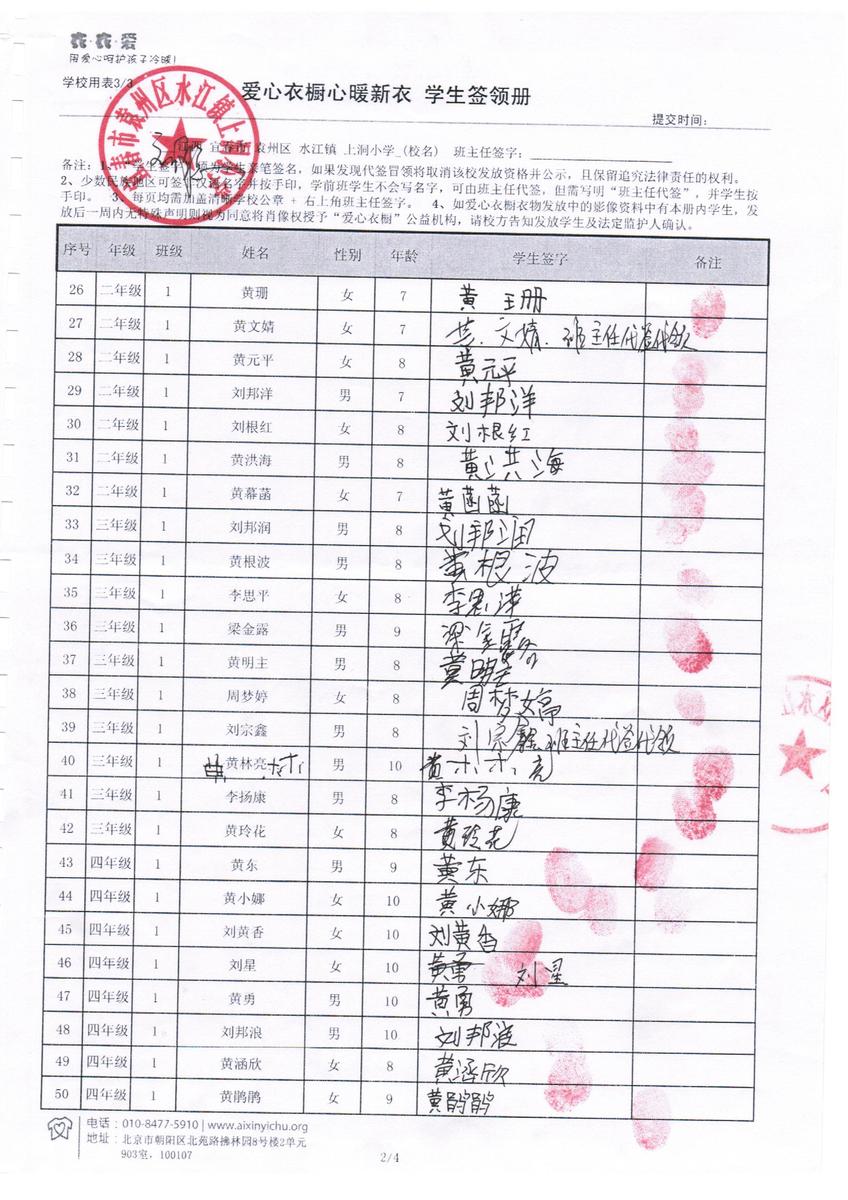 衣·衣·爱
用爱心呵护孩子冷暖!
学校用表3/3
爱心衣橱心暖新衣 学生签领册
提交时间:
宜春市 袁州区 水江镇 上洞小学_(校名) 班主任签字:
备注:1、学生签字必须为学生亲笔签名,如果发现代签冒领将取消该校发放资格并公示,且保留追究法律责任的权利。
2、少数民族地区可签非汉语名字并按手印,学前班学生不会写名字,可由班主任代签,但需写明“班主任代签”,并学生按
手印。 3、每页均需加盖清晰学校公章 + 右上角班主任签字。 4、如爱心衣橱衣物发放中的影像资料中有本册内学生,发
放后一周内无特殊声明则视为同意将肖像权授予“爱心衣橱”公益机构,请校方告知发放学生及法定监护人确认。
序号 年级 班级 姓名 性别 年龄 学生签字 备注
26 二年级 1 黄珊 女 7 黄 珊
27 二年级 1 黄文婧 女 7 黄文婧 班主任代签代领
28 二年级 1 黄元平 女 8 黄元平
29 二年级 1 刘邦洋 男 7 刘邦洋
30 二年级 1 刘根红 女 8 刘根红
31 二年级 1 黄洪海 男 8 黄洪海
32 二年级 1 黄幕菡 女 7 黄菡菡
33 三年级 1 刘邦润 男 8 刘邦润
34 三年级 1 黄根波 男 8 黄根波
35 三年级 1 李思平 女 8 李思萍
36 三年级 1 梁金露 男 9 梁金露
37 三年级 1 黄明主 男 8 黄明
38 三年级 1 周梦婷 女 8 周梦婷
39 三年级 1 刘宗鑫 男 8 刘宗鑫 班主任代签代领
40 三年级 1 黄林亮 男 10 黄林亮
41 三年级 1 李扬康 男 8 李杨康
42 三年级 1 黄玲花 女 8 黄玲花
43 四年级 1 黄东 男 9 黄东
44 四年级 1 黄小娜 女 10 黄小娜
45 四年级 1 刘黄香 女 10 刘黄香
46 四年级 1 刘星 女 10 黄勇 刘星
47 四年级 1 黄勇 男 10 黄勇
48 四年级 1 刘邦浪 男 10 刘邦浪
49 四年级 1 黄涵欣 女 8 黄涵欣
50 四年级 1 黄鹃鹃 女 9 黄鹃鹃
电话:010-8477-5910 | www.aixinyichu.org
地址:北京市朝阳区北苑路拂林园8号楼2单元
903室,100107
2/4